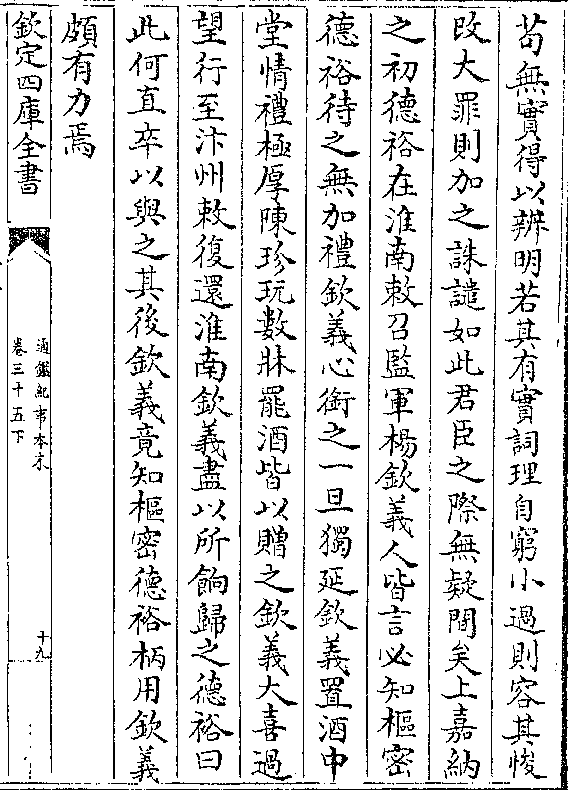 苟無實得以辨明若其有實詞理自窮小過則容其悛
改大罪則加之誅譴如此君臣之際無疑間矣上嘉納
之初德裕在淮南敕召監軍楊欽義人皆言必知樞密
德裕待之無加禮欽義心銜之一旦獨延欽義置酒中
堂情禮極厚陳珍玩數牀罷酒皆以贈之欽義大喜過
望行至汴州敕復還淮南欽義盡以所餉歸之德裕曰
此何直卒以與之其後欽義竟知樞密德裕柄用欽義
頗有力焉
欽定四庫全書
通鑑紀事本末
卷三十五下
十九